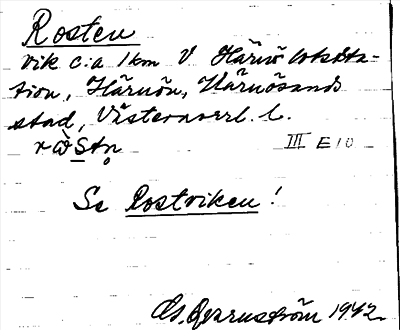 Rosten
vik c:a 1 km V Härnö lotssta-
tion, Härnön, Härnösands
stad, Västernorrl. l.
III E 10
Se Rostviken!
1942